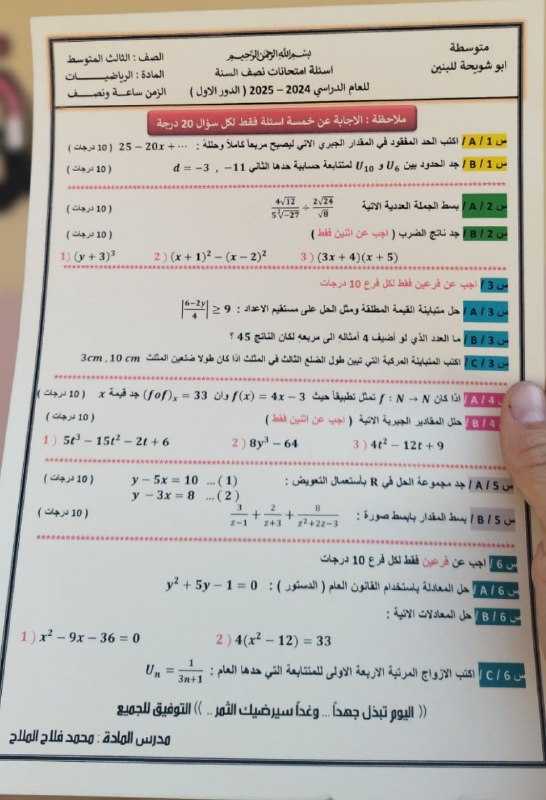 متوسطة
ابو شويحة للبنين
بسم الله الرحمن الرحيم
اسئلة امتحانات نصف السنة
للعام الدراسي 2024 – 2025 ( الدور الاول )
الصف : الثالث المتوسط
المادة : الرياضيــــات
الزمن ساعة ونصــف
ملاحظة : الاجابة عن خمسة اسئلة فقط لكل سؤال 20 درجة
س 1 / A / اكتب الحد المفقود في المقدار الجبري الاتي ليصبح مربعاً كاملاً وحلله : 25 − 20x + ⋯ ( 10 درجات )
س 1 / B / جد الحدود بين U₆ و U₁₀ لمتتابعة حسابية حدها الثاني 11− , d = −3 ( 10 درجات )
س 2 / A / بسط الجملة العددية الاتية 4√12 / 5∛−27 ÷ 2√24 / √8 ( 10 درجات )
س 2 / B / جد ناتج الضرب ( اجب عن اثنين فقط ) ( 10 درجات )
1) (y + 3)³ 2) (x + 1)² − (x − 2)² 3) (3x + 4)(x + 5)
س 3 / اجب عن فرعين فقط لكل فرع 10 درجات
س 3 / A / حل متباينة القيمة المطلقة ومثل الحل على مستقيم الاعداد : |(6−2y)/4| ≥ 9
س 3 / B / ما العدد الذي لو أضيف 4 أمثاله الى مربعه لكان الناتج 45 ؟
س 3 / C / اكتب المتباينة المركبة التي تبين طول الضلع الثالث في المثلث اذا كان طولا ضلعين المثلث 3cm , 10 cm
س 4 / A / اذا كان f : N → N تمثل تطبيقاً حيث f(x) = 4x − 3 وان (fof)ₓ = 33 جد قيمة x ( 10 درجات )
س 4 / B / حلل المقادير الجبرية الاتية ( اجب عن اثنين فقط ) ( 10 درجات )
1 ) 5t³ − 15t² − 2t + 6 2 ) 8y³ − 64 3 ) 4t² − 12t + 9
س 5 / A / جد مجموعة الحل في R بأستعمال التعويض : y − 5x = 10 …( 1 ) ( 10 درجات )
y − 3x = 8 …( 2 )
س 5 / B / بسط المقدار بابسط صورة : 3/(z−1) + 2/(z+3) + 8/(z²+2z−3) ( 10 درجات )
س 6 / اجب عن فرعين فقط لكل فرع 10 درجات
س 6 / A / حل المعادلة باستخدام القانون العام ( الدستور ) : y² + 5y − 1 = 0
س 6 / B / حل المعادلات الاتية :
1 ) x² − 9x − 36 = 0 2 ) 4(x² − 12) = 33
س 6 / C / اكتب الازواج المرتبة الاربعة الاولى للمتتابعة التي حدها العام : Uₙ = 1/(3n+1)
(( اليوم تبذل جهداً ... وغداً سيرضيك الثمر .. )) التوفيق للجميع
مدرس المادة : محمد فلاح الملاح